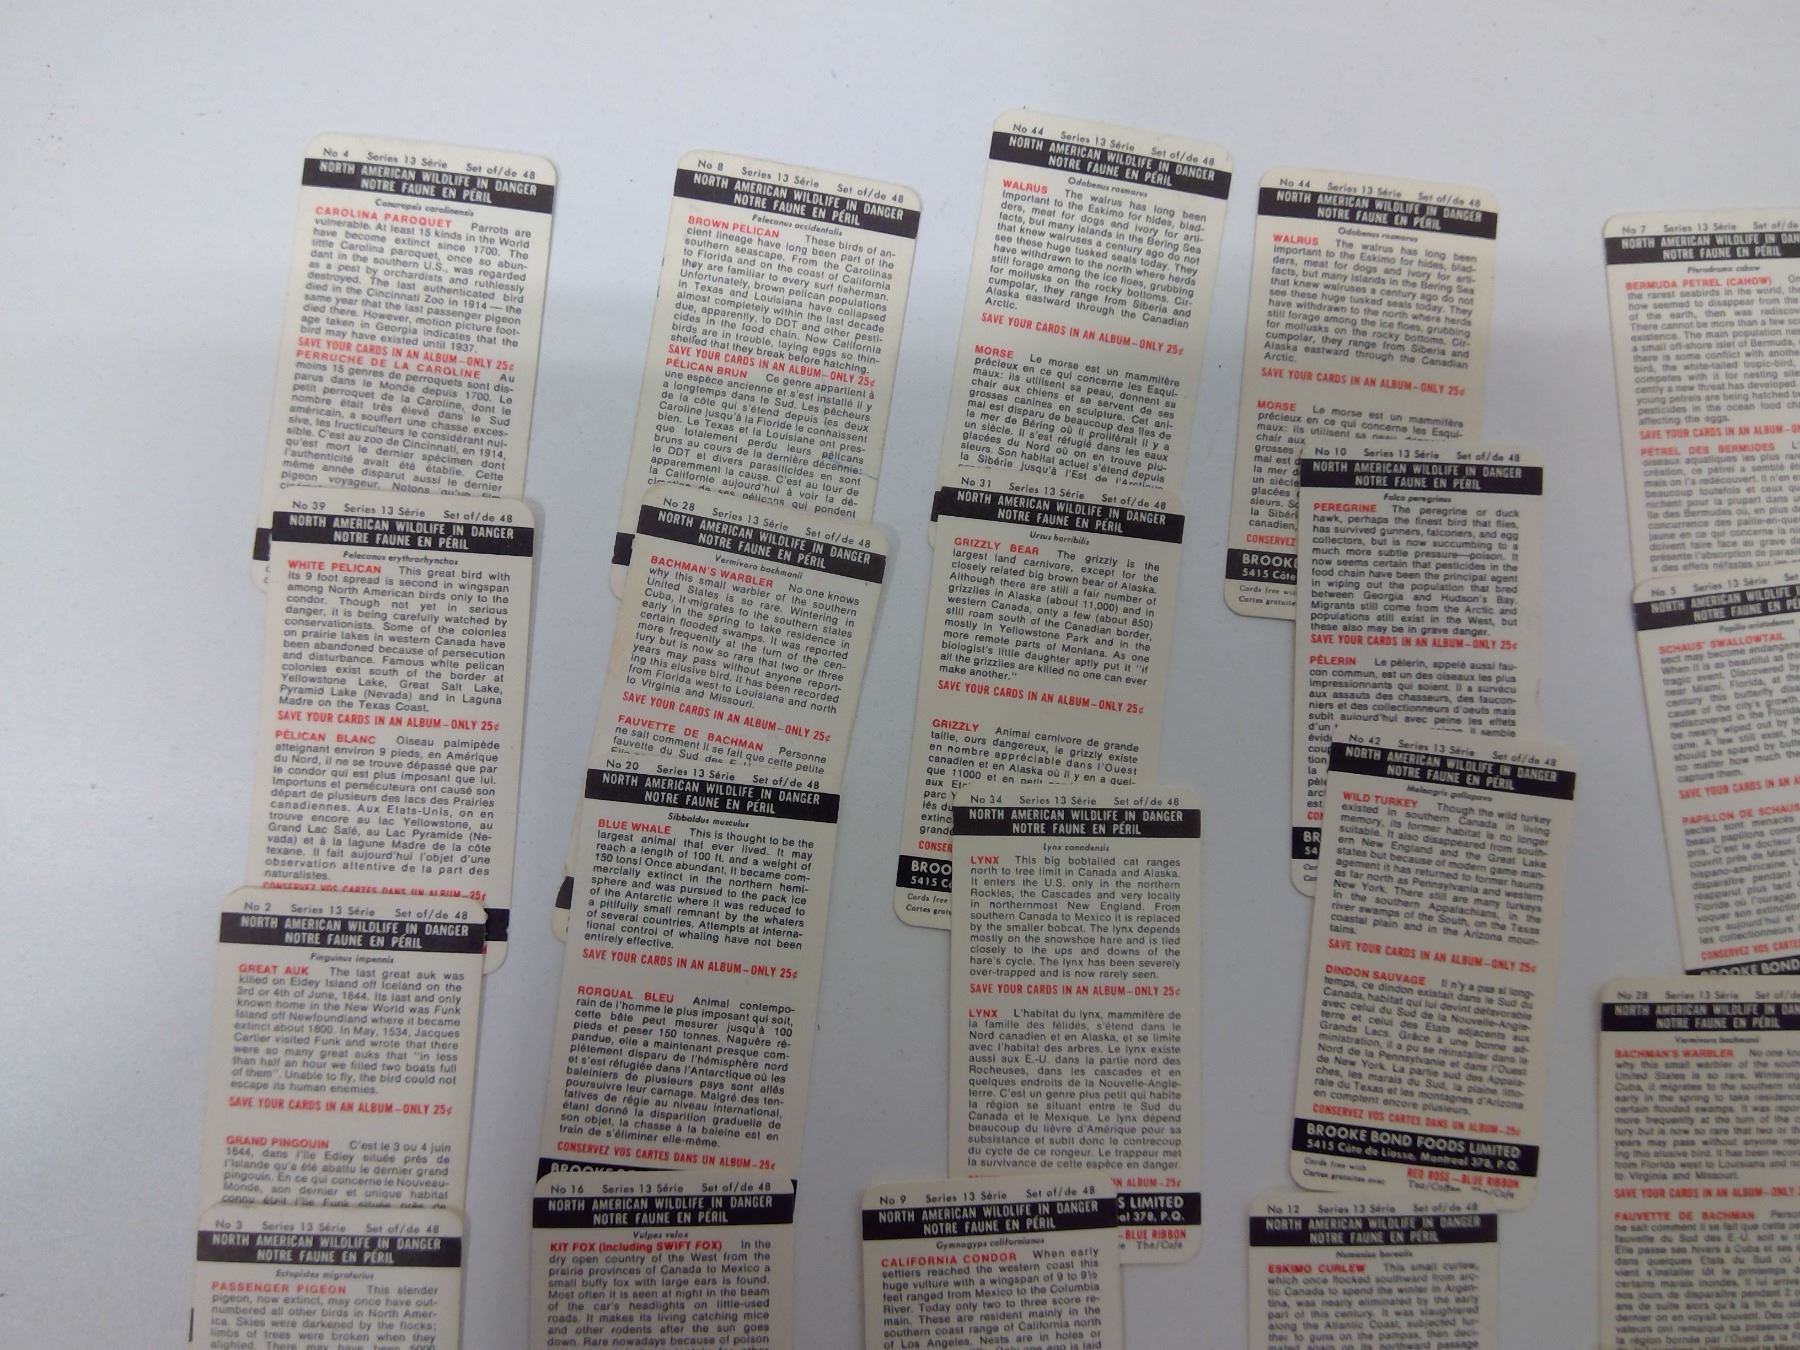 No 4 Series 13 Série Set of/de 48
NORTH AMERICAN WILDLIFE IN DANGER
NOTRE FAUNE EN PÉRIL
Conuropsis carolinensis
CAROLINA PAROQUET Parrots are
vulnerable. At least 15 kinds in the World
have become extinct since 1700. The
little Carolina paroquet, once so abun-
dant in the southern U.S., was regarded
as a pest by orchardists and ruthlessly
destroyed. The last authenticated bird
died in the Cincinnati Zoo in 1914 — the
same year that the last passenger pigeon
died there. However, motion picture foot-
age taken in Georgia indicates that the
bird may have existed until 1937.
SAVE YOUR CARDS IN AN ALBUM—ONLY 25¢
PERRUCHE DE LA CAROLINE Au
moins 15 genres de perroquets sont dis-
parus dans le Monde depuis 1700. Le
petit perroquet de la Caroline, dont le
nombre était très élevé dans le Sud
américain, a souffert une chasse exces-
sive, les fructiculteurs le considérant nui-
sible. C'est au zoo de Cincinnati, en 1914,
qu'est mort le dernier spécimen dont
l'authenticité avait été établie. Cette
même année disparut aussi le dernier
pigeon voyageur. Notons qu'un film
No 39 Series 13 Série Set of/de 48
NORTH AMERICAN WILDLIFE IN DANGER
NOTRE FAUNE EN PÉRIL
Pelecanus erythrorhynchos
WHITE PELICAN This great bird with
its 9 foot spread is second in wingspan
among North American birds only to the
condor. Though not yet in serious
danger, it is being carefully watched by
conservationists. Some of the colonies
on prairie lakes in western Canada have
been abandoned because of persecution
and disturbance. Famous white pelican
colonies exist south of the border at
Yellowstone Lake, Great Salt Lake,
Pyramid Lake (Nevada) and in Laguna
Madre on the Texas Coast.
SAVE YOUR CARDS IN AN ALBUM—ONLY 25¢
PÉLICAN BLANC Oiseau palmipède
atteignant environ 9 pieds, en Amérique
du Nord, il ne se trouve dépassé que par
le condor qui est plus imposant que lui.
Importuns et persécuteurs ont causé son
départ de plusieurs des lacs des Prairies
canadiennes. Aux Etats-Unis, on en
trouve encore au lac Yellowstone, au
Grand Lac Salé, au Lac Pyramide (Ne-
vada) et à la lagune Madre de la côte
texane. Il fait aujourd'hui l'objet d'une
observation attentive de la part des
naturalistes.
CONSERVEZ VOS CARTES DANS UN ALBUM—25¢
No 2 Series 13 Série Set of/de 48
NORTH AMERICAN WILDLIFE IN DANGER
NOTRE FAUNE EN PÉRIL
Pinguinus impennis
GREAT AUK The last great auk was
killed on Eldey Island off Iceland on the
3rd or 4th of June, 1844. Its last and only
known home in the New World was Funk
Island off Newfoundland where it became
extinct about 1800. In May, 1534, Jacques
Cartier visited Funk and wrote that there
were so many great auks that "in less
than half an hour we filled two boats full
of them". Unable to fly, the bird could not
escape its human enemies.
SAVE YOUR CARDS IN AN ALBUM—ONLY 25¢
GRAND PINGOUIN C'est le 3 ou 4 juin
1844, dans l'île Edley située près de
l'Islande qu'a été abattu le dernier grand
pingouin. En ce qui concerne le Nouveau-
Monde, son dernier et unique habitat
connu était l'île Funk située près de
No 3 Series 13 Série Set of/de 48
NORTH AMERICAN WILDLIFE IN DANGER
NOTRE FAUNE EN PÉRIL
Ectopistes migratorius
PASSENGER PIGEON This slender
pigeon, now extinct, may once have out-
numbered all other birds in North Amer-
ica. Skies were darkened by the flocks;
limbs of trees were broken when they
alighted. There may have been
No 8 Series 13 Série Set of/de 48
NORTH AMERICAN WILDLIFE IN DANGER
NOTRE FAUNE EN PÉRIL
Pelecanus occidentalis
BROWN PELICAN These birds of an-
cient lineage have long been part of the
southern seascape. From the Carolinas
to Florida and on the coast of California
they are familiar to every surf fisherman.
Unfortunately, brown pelican populations
in Texas and Louisiana have collapsed
almost completely within the last decade
due, apparently, to DDT and other pesti-
cides in the food chain. Now California
birds are in trouble, laying eggs so thin-
shelled that they break before hatching.
SAVE YOUR CARDS IN AN ALBUM—ONLY 25¢
PÉLICAN BRUN Ce genre appartient à
une espèce ancienne et s'est installé il y
a longtemps dans le Sud. Les pêcheurs
de la côte qui s'étend depuis les deux
Caroline jusqu'à la Floride le connaissent
bien. Le Texas et la Louisiane ont pres-
que totalement perdu leurs pélicans
bruns au cours de la dernière décennie:
le DDT et divers parasiticides en sont
apparemment la cause. C'est au tour de
la Californie aujourd'hui à voir la dé-
de ses pélicans qui pondent
No 28 Series 13 Série Set of/de 48
NORTH AMERICAN WILDLIFE IN DANGER
NOTRE FAUNE EN PÉRIL
Vermivora bachmanii
BACHMAN'S WARBLER No one knows
why this small warbler of the southern
United States is so rare. Wintering in
Cuba, it migrates to the southern states
early in the spring to take residence in
certain flooded swamps. It was reported
more frequently at the turn of the cen-
tury but is now so rare that two or three
years may pass without anyone report-
ing this elusive bird. It has been recorded
from Florida west to Louisiana and north
to Virginia and Missouri.
SAVE YOUR CARDS IN AN ALBUM—ONLY 25¢
FAUVETTE DE BACHMAN Personne
ne sait comment il se fait que cette petite
fauvette du Sud des
No 20 Series 13 Série Set of/de 48
NORTH AMERICAN WILDLIFE IN DANGER
NOTRE FAUNE EN PÉRIL
Sibbaldus musculus
BLUE WHALE This is thought to be the
largest animal that ever lived. It may
reach a length of 100 ft. and a weight of
150 tons! Once abundant, it became com-
mercially extinct in the northern hemi-
sphere and was pursued to the pack ice
of the Antarctic where it was reduced to
a pitifully small remnant by the whalers
of several countries. Attempts at interna-
tional control of whaling have not been
entirely effective.
SAVE YOUR CARDS IN AN ALBUM—ONLY 25¢
RORQUAL BLEU Animal contempo-
rain de l'homme le plus imposant qui soit,
cette bête peut mesurer jusqu'à 100
pieds et peser 150 tonnes. Naguère ré-
pandue, elle a maintenant presque com-
plètement disparu de l'hémisphère nord
et s'est réfugiée dans l'Antarctique où les
baleiniers de plusieurs pays sont allés
poursuivre leur carnage. Malgré des ten-
tatives de régie au niveau international,
étant donné la disparition graduelle de
son objet, la chasse à la baleine est en
train de s'éliminer elle-même.
CONSERVEZ VOS CARTES DANS UN ALBUM—25¢
No 16 Series 13 Série Set of/de 48
NORTH AMERICAN WILDLIFE IN DANGER
NOTRE FAUNE EN PÉRIL
Vulpes velox
KIT FOX (Including SWIFT FOX) In the
dry open country of the West from the
prairie provinces of Canada to Mexico a
small buffy fox with large ears is found.
Most often it is seen at night in the beam
of the car's headlights on little-used
roads. It makes its living catching mice
and other rodents after the sun goes
down. Rare nowadays because of poison
No 44 Series 13 Série Set of/de 48
NORTH AMERICAN WILDLIFE IN DANGER
NOTRE FAUNE EN PÉRIL
Odobenus rosmarus
WALRUS The walrus has long been
important to the Eskimo for hides, blad-
ders, meat for dogs and ivory for arti-
facts, but many islands in the Bering Sea
that knew walruses a century ago do not
see these huge tusked seals today. They
have withdrawn to the north where herds
still forage among the ice floes, grubbing
for mollusks on the rocky bottoms. Cir-
cumpolar, they range from Siberia and
Alaska eastward through the Canadian
Arctic.
SAVE YOUR CARDS IN AN ALBUM—ONLY 25¢
MORSE Le morse est un mammifère
précieux en ce qui concerne les Esqui-
maux: ils utilisent sa peau, donnent sa
chair aux chiens et se servent de ses
grosses canines en sculpture. Cet ani-
mal est disparu de beaucoup des îles de
la mer de Béring où il proliférait il y a
un siècle. Il s'est réfugié dans les eaux
glacées du Nord où on en trouve plu-
sieurs. Son habitat actuel s'étend depuis
la Sibérie jusqu'à l'Est de l'Arctique
No 31 Series 13 Série Set of/de 48
NORTH AMERICAN WILDLIFE IN DANGER
NOTRE FAUNE EN PÉRIL
Ursus horribilis
GRIZZLY BEAR The grizzly is the
largest land carnivore, except for the
closely related big brown bear of Alaska.
Although there are still a fair number of
grizzlies in Alaska (about 11,000) and in
western Canada, only a few (about 850)
still roam south of the Canadian border,
mostly in Yellowstone Park and in the
more remote parts of Montana. As one
biologist's little daughter aptly put it "if
all the grizzlies are killed no one can ever
make another."
SAVE YOUR CARDS IN AN ALBUM—ONLY 25¢
GRIZZLY Animal carnivore de grande
taille, ours dangereux, le grizzly existe
en nombre appréciable dans l'Ouest
canadien et en Alaska où il y en a quel-
que 11000 et en
aux
parc
lés du
extinc
grande
CONSER
BROO
5415 C
Cards free
Cartes grat
No 34 Series 13 Série Set of/de 48
NORTH AMERICAN WILDLIFE IN DANGER
NOTRE FAUNE EN PÉRIL
Lynx canadensis
LYNX This big bobtailed cat ranges
north to tree limit in Canada and Alaska.
It enters the U.S. only in the northern
Rockies, the Cascades and very locally
in northernmost New England. From
southern Canada to Mexico it is replaced
by the smaller bobcat. The lynx depends
mostly on the snowshoe hare and is tied
closely to the ups and downs of the
hare's cycle. The lynx has been severely
over-trapped and is now rarely seen.
SAVE YOUR CARDS IN AN ALBUM—ONLY 25¢
LYNX L'habitat du lynx, mammifère de
la famille des félidés, s'étend dans le
Nord canadien et en Alaska, et se limite
avec l'habitat des arbres. Le lynx existe
aussi aux E.-U. dans la partie nord des
Rocheuses, dans les cascades et en
quelques endroits de la Nouvelle-Angle-
terre. C'est un genre plus petit qui habite
la région se situant entre le Sud du
Canada et le Mexique. Le lynx dépend
beaucoup du lièvre d'Amérique pour sa
subsistance et subit donc le contrecoup
du cycle de ce rongeur. Le trappeur met
la survivance de cette espèce en danger.
UM—25¢
S LIMITED
al 378, P.Q.
—BLUE RIBBON
The/Café
No 9 Series 13 Série Set of/de 48
NORTH AMERICAN WILDLIFE IN DANGER
NOTRE FAUNE EN PÉRIL
Gymnogyps californianus
CALIFORNIA CONDOR When early
settlers reached the western coast this
huge vulture with a wingspan of 9 to 9½
feet ranged from Mexico to the Columbia
River. Today only two to three score re-
main. These are resident mainly in the
southern coast range of California north
of Los Angeles. Nests are in holes or
No 44 Series 13 Série Set of/de 48
NORTH AMERICAN WILDLIFE IN DANGER
NOTRE FAUNE EN PÉRIL
Odobenus rosmarus
WALRUS The walrus has long been
important to the Eskimo for hides, blad-
ders, meat for dogs and ivory for arti-
facts, but many islands in the Bering Sea
that knew walruses a century ago do not
see these huge tusked seals today. They
have withdrawn to the north where herds
still forage among the ice floes, grubbing
for mollusks on the rocky bottoms. Cir-
cumpolar, they range from Siberia and
Alaska eastward through the Canadian
Arctic.
SAVE YOUR CARDS IN AN ALBUM—ONLY 25¢
MORSE Le morse est un mammifère
précieux en ce qui concerne les Esqui-
maux: ils utilisent sa peau,
chair aux
grosses
mal est
la mer d
un siècle
glacées
sieurs. So
la Sibér
canadien,
CONSERVEZ
BROOKE
5415 Côte
Cards free wi
Cartes gratuite
No 10 Series 13 Série Set of/de 48
NORTH AMERICAN WILDLIFE IN DANGER
NOTRE FAUNE EN PÉRIL
Falco peregrinus
PEREGRINE The peregrine or duck
hawk, perhaps the finest bird that flies,
has survived gunners, falconers, and egg
collectors, but is now succumbing to a
much more subtle pressure—poison. It
now seems certain that pesticides in the
food chain have been the principal agent
in wiping out the population that bred
between Georgia and Hudson's Bay.
Migrants still come from the Arctic and
populations still exist in the West, but
these also may be in grave danger.
SAVE YOUR CARDS IN AN ALBUM—ONLY 25¢
PÈLERIN Le pèlerin, appelé aussi fau-
con commun, est un des oiseaux les plus
impressionnants qui soient. Il a survécu
aux assauts des chasseurs, des faucon-
niers et des collectionneurs d'oeufs mais
subit aujourd'hui avec peine les effets
d'un
Il semble
No 42 Series 13 Série Set of/de 48
NORTH AMERICAN WILDLIFE IN DANGER
NOTRE FAUNE EN PÉRIL
Meleagris gallopavo
WILD TURKEY Though the wild turkey
existed in southern Canada in living
memory, its former habitat is no longer
suitable. It also disappeared from south-
ern New England and the Great Lake
states but because of modern game man-
agement it has returned to former haunts
as far north as Pennsylvania and western
New York. There are still many turkeys
in the southern Appalachians, in the
river swamps of the South, on the Texas
coastal plain and in the Arizona moun-
tains.
SAVE YOUR CARDS IN AN ALBUM—ONLY 25¢
DINDON SAUVAGE Il n'y a pas si long-
temps, ce dindon existait dans le Sud du
Canada, habitat qui lui devint défavorable
avec celui du Sud de la Nouvelle-Angle-
terre et celui des Etats adjacents aux
Grands Lacs. Grâce à une bonne ad-
ministration, il a pu se réinstaller dans le
Nord de la Pennsylvanie et dans l'Ouest
de New York. La partie sud des Appala-
ches, les marais du Sud, la plaine litto-
rale du Texas et les montagnes d'Arizona
en comptent encore plusieurs.
CONSERVEZ VOS CARTES DANS UN ALBUM—25¢
BROOKE BOND FOODS LIMITED
5415 Côte de Liesse, Montreal 378, P.Q.
Cards free with RED ROSE—BLUE RIBBON
Cartes gratuites avec Tea/Coffee The/Café
No 12 Series 13 Série Set of/de 48
NORTH AMERICAN WILDLIFE IN DANGER
NOTRE FAUNE EN PÉRIL
Numenius borealis
ESKIMO CURLEW This small curlew,
which once flocked southward from arc-
tic Canada to spend the winter in Argen-
tina, was nearly eliminated by the early
part of this century. It was slaughtered
along the Atlantic Coast, subjected fur-
ther to guns on the pampas, then deci-
mated again on its northward passage
No 7 Series 13 Série Set of/d
NORTH AMERICAN WILDLIFE IN DAN
NOTRE FAUNE EN PÉRIL
Pterodroma cahow
BERMUDA PETREL (CAHOW)
the rarest seabirds in the world,
how seemed to disappear from the
of the earth, then was rediscov
There cannot be more than a few
existence. The main population
a small off-shore islet of Bermuda,
there is some conflict with anoth
bird, the white-tailed tropic-bird,
competes with it for nesting site
cently a new threat has developed,
young petrels are being hatched
pesticides in the ocean food cha
affecting the eggs.
SAVE YOUR CARDS IN AN ALBUM—O
PÉTREL DES BERMUDES
oiseaux aquatiques les plus rares
No 5 Series 13 Série Set
NORTH AMERICAN WILDLIFE IN
NOTRE FAUNE EN PÉ
Papilio aristodemus
SCHAUS' SWALLOWTAIL
sect may become endanger
When it is as beautiful as thi
tragic event. Discovered by
near Miami, Florida, at the
PAPILLON DE SCHAUS
CONSERVEZ VOS CARTES
BROOKE BOND
No 28 Series 13 Série Set of/de
NORTH AMERICAN WILDLIFE IN DAN
NOTRE FAUNE EN PÉRIL
Vermivora bachmanii
BACHMAN'S WARBLER No one kn
why this small warbler of the south
United States is so rare. Wintering
Cuba, it migrates to the southern sta
early in the spring to take residence
certain flooded swamps. It was repor
more frequently at the turn of the c
tury but is now so rare that two or th
years may pass without anyone repo
ing this elusive bird. It has been recor
from Florida west to Louisiana and no
to Virginia and Missouri.
SAVE YOUR CARDS IN AN ALBUM—ONLY
FAUVETTE DE BACHMAN Person
ne sait comment il se fait que cette pe
fauvette du Sud des E.-U. soit si r
Elle passe ses hivers à Cuba et ses